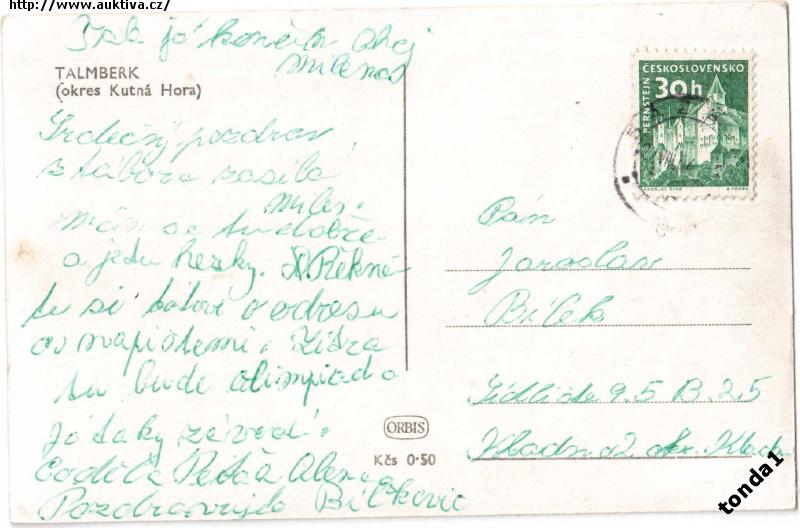 http://www.auktiva.cz/
Tak já končím Ahoj
Milena
TALMBERK
(okres Kutná Hora)
Srdečný pozdrav
z tábora zasílá
Milen.
Mám se tu dobře
a jedu hezky. Řekně
te si tátovi o adresu
a napište mi. Zítra
tu bude olimpiada
já taky závodí.
Co dělá Péťa Alen
Pozdravujte Bílkovic
ORBIS
Kčs 0·50
ČESKOSLOVENSKO
30h
PERNŠTEJN
JAROSLAV ŠVÁB
Pán
Jaroslav
Bílek
Sídliště 9.5 B.25
Kladno 2 okr. Kladno
tonda1